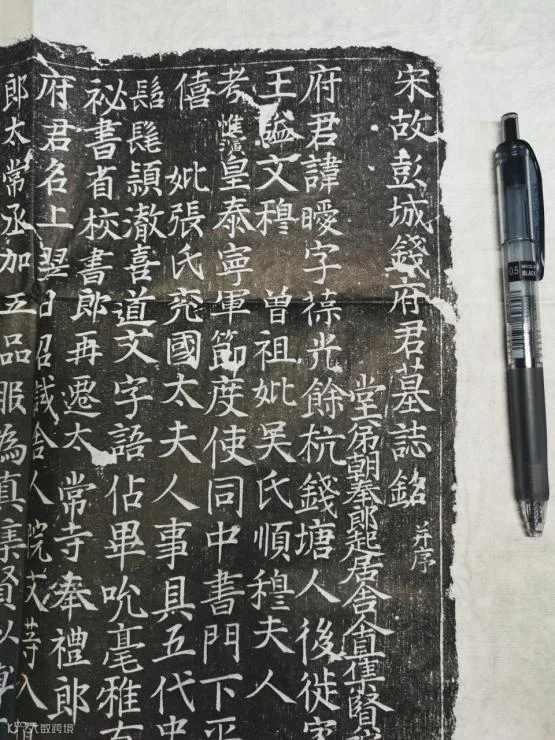 宋故彭城錢府君墓誌銘 并序
堂弟朝奉郎起居舍人直集賢
府君諱曖字葆光餘杭錢塘人後徙家
王謚文穆 曾祖妣吳氏順穆夫人
考惟濬皇泰寧軍節度使同中書門下平
僖 妣張氏兖國太夫人事具五代史
髫髦頴澈喜道文字語佔畢吮毫雅有
祕書省校書郎再遷太常寺奉禮郎
府君名上翌日召試舍人院入
郎太常丞加五品服為真集賢以
0.5
BLACK
大数跨境